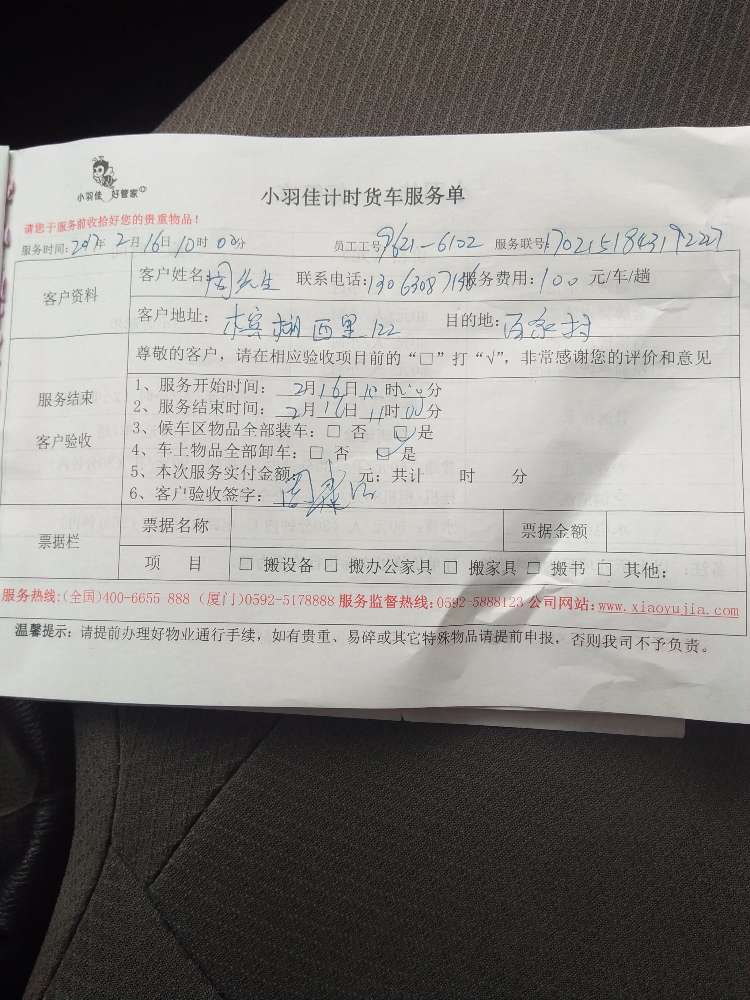 小羽佳 好管家
小羽佳计时货车服务单
请您于服务前收拾好您的贵重物品！
服务时间：2017年2月16日10时00分 员工工号9621-6102 服务联号
客户资料
客户姓名周先生 联系电话： 服务费用：100元/车/趟
客户地址：槟榔西里122 目的地：
服务结束
客户验收
尊敬的客户，请在相应验收项目前的“□”打“√”，非常感谢您的评价和意见
1、服务开始时间：2月16日10时00分
2、服务结束时间：2月16日11时00分
3、候车区物品全部装车：□ 否 □是
4、车上物品全部卸车：□ 否 □ 是
5、本次服务实付金额： 元；共计 时 分
6、客户验收签字：
票据栏
票据名称 票据金额
项 目 □ 搬设备 □ 搬办公家具 □ 搬家具 □ 搬书 □ 其他：
服务热线：(全国)400-6655 888 (厦门)0592-5178888 服务监督热线：0592-5888123 公司网站：www.xiaoyujia.com
温馨提示：请提前办理好物业通行手续，如有贵重、易碎或其它特殊物品请提前申报，否则我司不予负责。